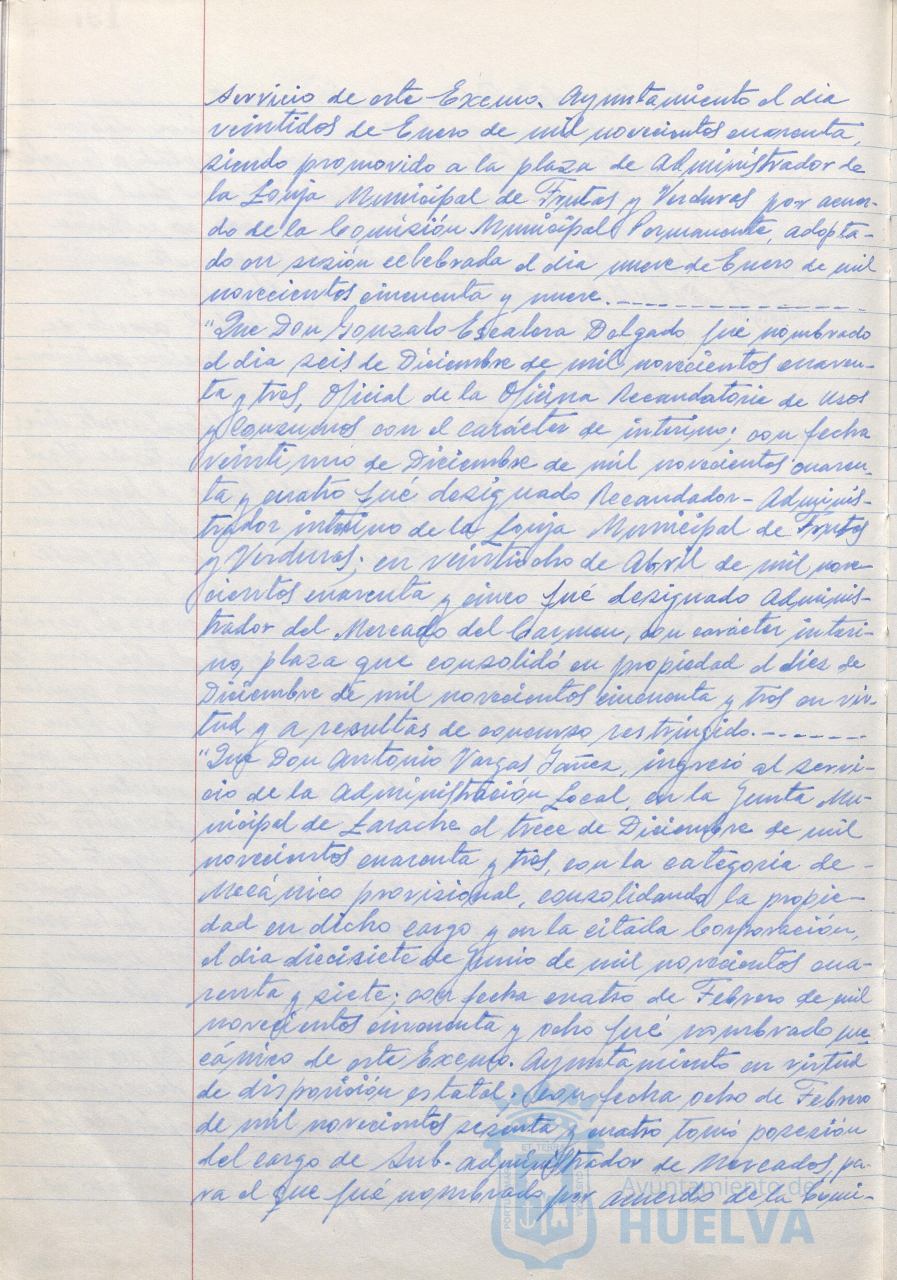 servicio de este Excmo. Ayuntamiento el dia
veintidos de Enero de mil novecientos cuarenta,
siendo promovido a la plaza de Administrador de
la Lonja Municipal de Frutas y Verduras por acuer-
do de la Comisión Municipal Permanente, adopta-
do en sesión celebrada el dia nueve de Enero de mil
novecientos cincuenta y nueve.
"Que Don Gonzalo Escalera Delgado fué nombrado
el dia seis de Diciembre de mil novecientos cuaren-
ta y tres, Oficial de la Oficina Recaudatoria de Usos
y Consumos con el carácter de interino; con fecha
veintiuno de Diciembre de mil novecientos cuaren-
ta y cuatro fué designado Recaudador-Adminis-
trador interino de la Lonja Municipal de Frutas
y Verduras; en veintiocho de Abril de mil nove-
cientos cuarenta y cinco fué designado Adminis-
trador del Mercado del Carmen, con carácter interi-
no, plaza que consolidó en propiedad el diez de
Diciembre de mil novecientos cincuenta y tres en vir-
tud y a resultas de concurso restringido.
"Que Don Antonio Vargas Yañez, ingresó al servi-
cio de la Administración Local, en la Junta Mu-
nicipal de Larache el trece de Diciembre de mil
novecientos cuarenta y tres, con la categoria de-
Mecánico provisional, consolidando la propie-
dad en dicho cargo y en la citada Corporación,
el dia diecisiete de Junio de mil novecientos cua-
renta y siete; con fecha cuatro de Febrero de mil
novecientos cincuenta y ocho fué nombrado me
cánico de este Excmo. Ayuntamiento en virtud
de disposición estatal. Con fecha ocho de Febrero
de mil novecientos sesenta y cuatro tomó posesión
del cargo de Sub-administrador de Mercados, pa-
ra el que fué nombrado por acuerdo de la Comi-
Ayuntamiento de
HUELVA